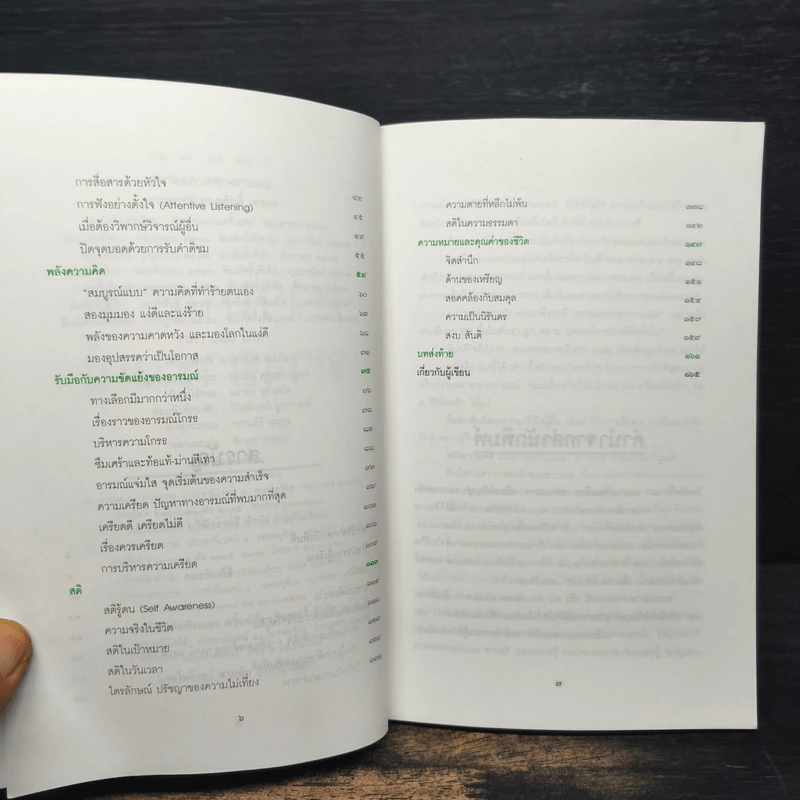 การสื่อสารด้วยหัวใจ ๔๒
การฟังอย่างตั้งใจ (Attentive Listening) ๔๕
เมื่อต้องวิพากษ์วิจารณ์ผู้อื่น ๔๙
ปิดจุดบอดด้วยการรับคำติชม ๕๕
พลังความคิด ๕๙
"สมบูรณ์แบบ" ความคิดที่ทำร้ายตนเอง ๖๐
สองมุมมอง แง่ดีและแง่ร้าย ๖๓
พลังของความคาดหวัง และมองโลกในแง่ดี ๖๘
มองอุปสรรคว่าเป็นโอกาส ๗๑
รับมือกับความขัดแย้งของอารมณ์ ๗๕
ทางเลือกมีมากกว่าหนึ่ง ๗๖
เรื่องราวของอารมณ์โกรธ ๗๘
บริหารความโกรธ ๘๓
ซึมเศร้าและท้อแท้-ม่านสีเทา ๘๘
อารมณ์แจ่มใส จุดเริ่มต้นของความสำเร็จ ๙๒
ความเครียด ปัญหาทางอารมณ์ที่พบมากที่สุด ๙๙
เครียดดี เครียดไม่ดี ๑๐๓
เรื่องควรเครียด ๑๐๖
การบริหารความเครียด ๑๐๙
สติ ๑๑๓
สติรู้ตน (Self Awareness) ๑๑๔
ความจริงในชีวิต ๑๑๘
สติในเป้าหมาย ๑๒๓
สติในวันเวลา ๑๒๘
ไตรลักษณ์ ปรัชญาของความไม่เที่ยง ๑๓๒
๖
ความตายที่หลีกไม่พ้น ๑๓๘
สติในความธรรมดา ๑๔๒
ความหมายและคุณค่าของชีวิต ๑๔๗
จิตสำนึก ๑๔๘
ด้านของเหรียญ ๑๕๑
สอดคล้องกับสมดุล ๑๕๔
ความเป็นนิรันดร ๑๕๗
สงบ สันติ ๑๕๙
บทส่งท้าย ๑๖๑
เกี่ยวกับผู้เขียน ๑๖๕
๗